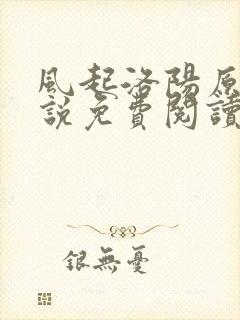 風起洛陽原
說免費閱讀
銀無憂